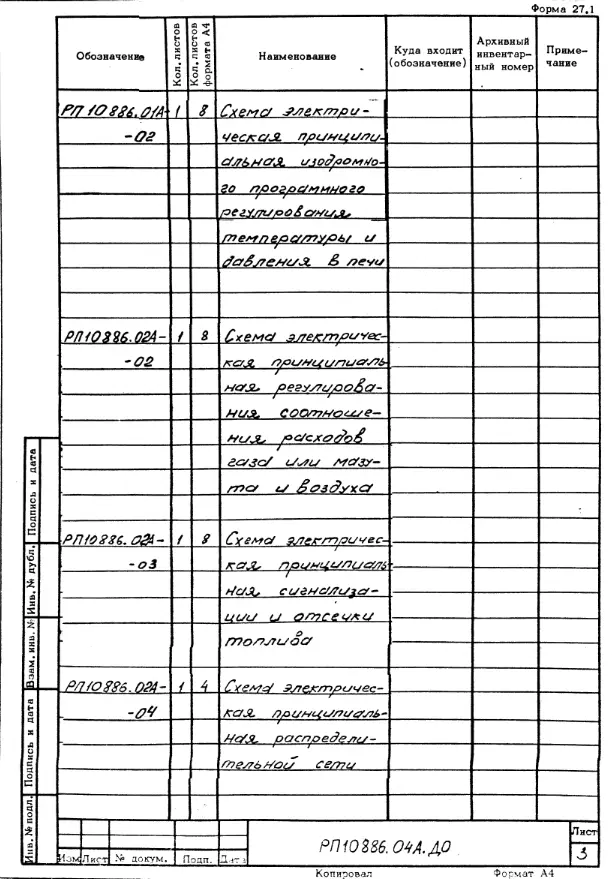 Форма 27.1
Обозначение Кол. листов Кол. листов формата А4 Наименование Куда входит (обозначение) Архивный инвентар- ный номер Приме- чание
РП 10886.01А- 1 8 Схема электри-
-02 ческая принципи-
альная изодромно-
го программного
регулирования
температуры и
давления в печи
РП10886.02А- 1 8 Схема электричес-
-02 кая принципиаль-
ная регулирова-
ния соотноше-
ния расходов
газа или мазу-
та и воздуха
РП10886.02А- 1 8 Схема электричес-
-03 кая принципиаль-
ная сигнализа-
ции и отсечки
топлива
РП10886.02А- 1 4 Схема электричес-
-04 кая принципиаль-
ная распредели-
тельной сети
Инв. № подл. Подпись и дата Взам. инв. № Инв. № дубл. Подпись и дата
Изм Лист № докум. Подп. Дата
РП10886.04А.ДО
Лист
3
Копировал Формат А4